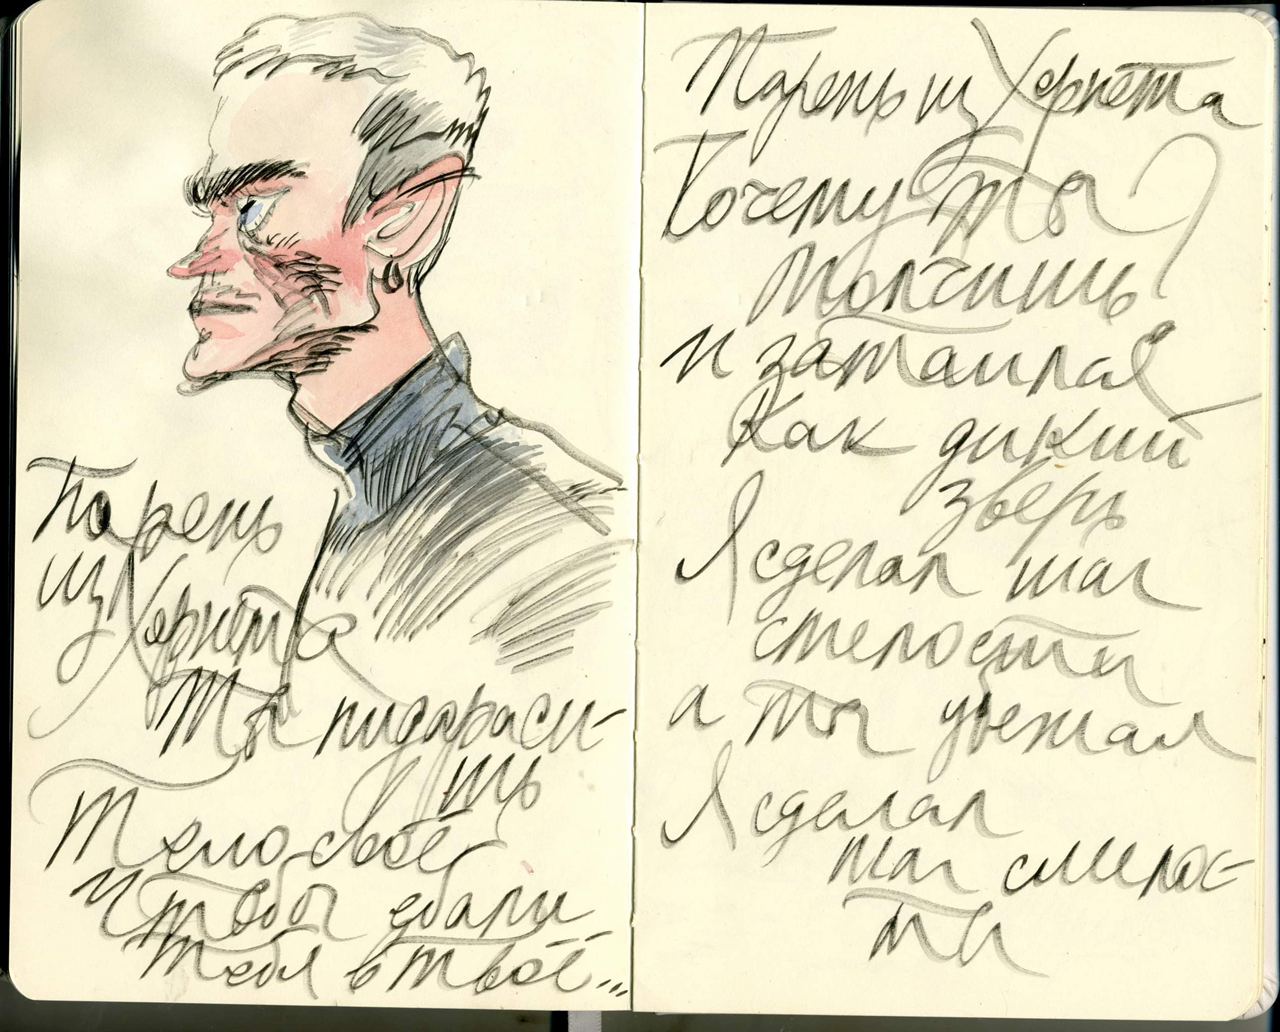 Парень
из Хорнета
Ты пидараси-
ть
Тело своё
И тебя ебали
тебя в твоё...
Парень из Хорнета
Почему ты
молчишь?
и затаился
Как дикий
зверь
Я сделал шаг
смелости
а ты убежал
Я сделал
шаг смелос-
ти